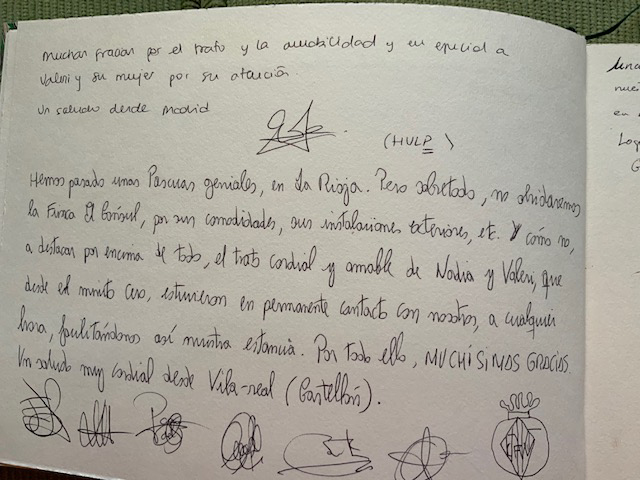 muchas gracias por el trato y la amabilidad y en especial a
Valeri y su mujer por su atención.
un saludo desde Madrid
(HULP)
Hemos pasado unas Pascuas geniales, en La Rioja. Pero sobretodo, no olvidaremos
la Finca El Cónsul, por sus comodidades, sus instalaciones exteriores, etc. Y cómo no,
a destacar por encima de todo, el trato cordial y amable de Nadia y Valeri, que
desde el minuto cero, estuvieron en permanente contacto con nosotros, a cualquier
hora, facilitándonos así nuestra estancia. Por todo ello, MUCHÍSIMAS GRACIAS.
Un saludo muy cordial desde Vila-real (Castellón).
en